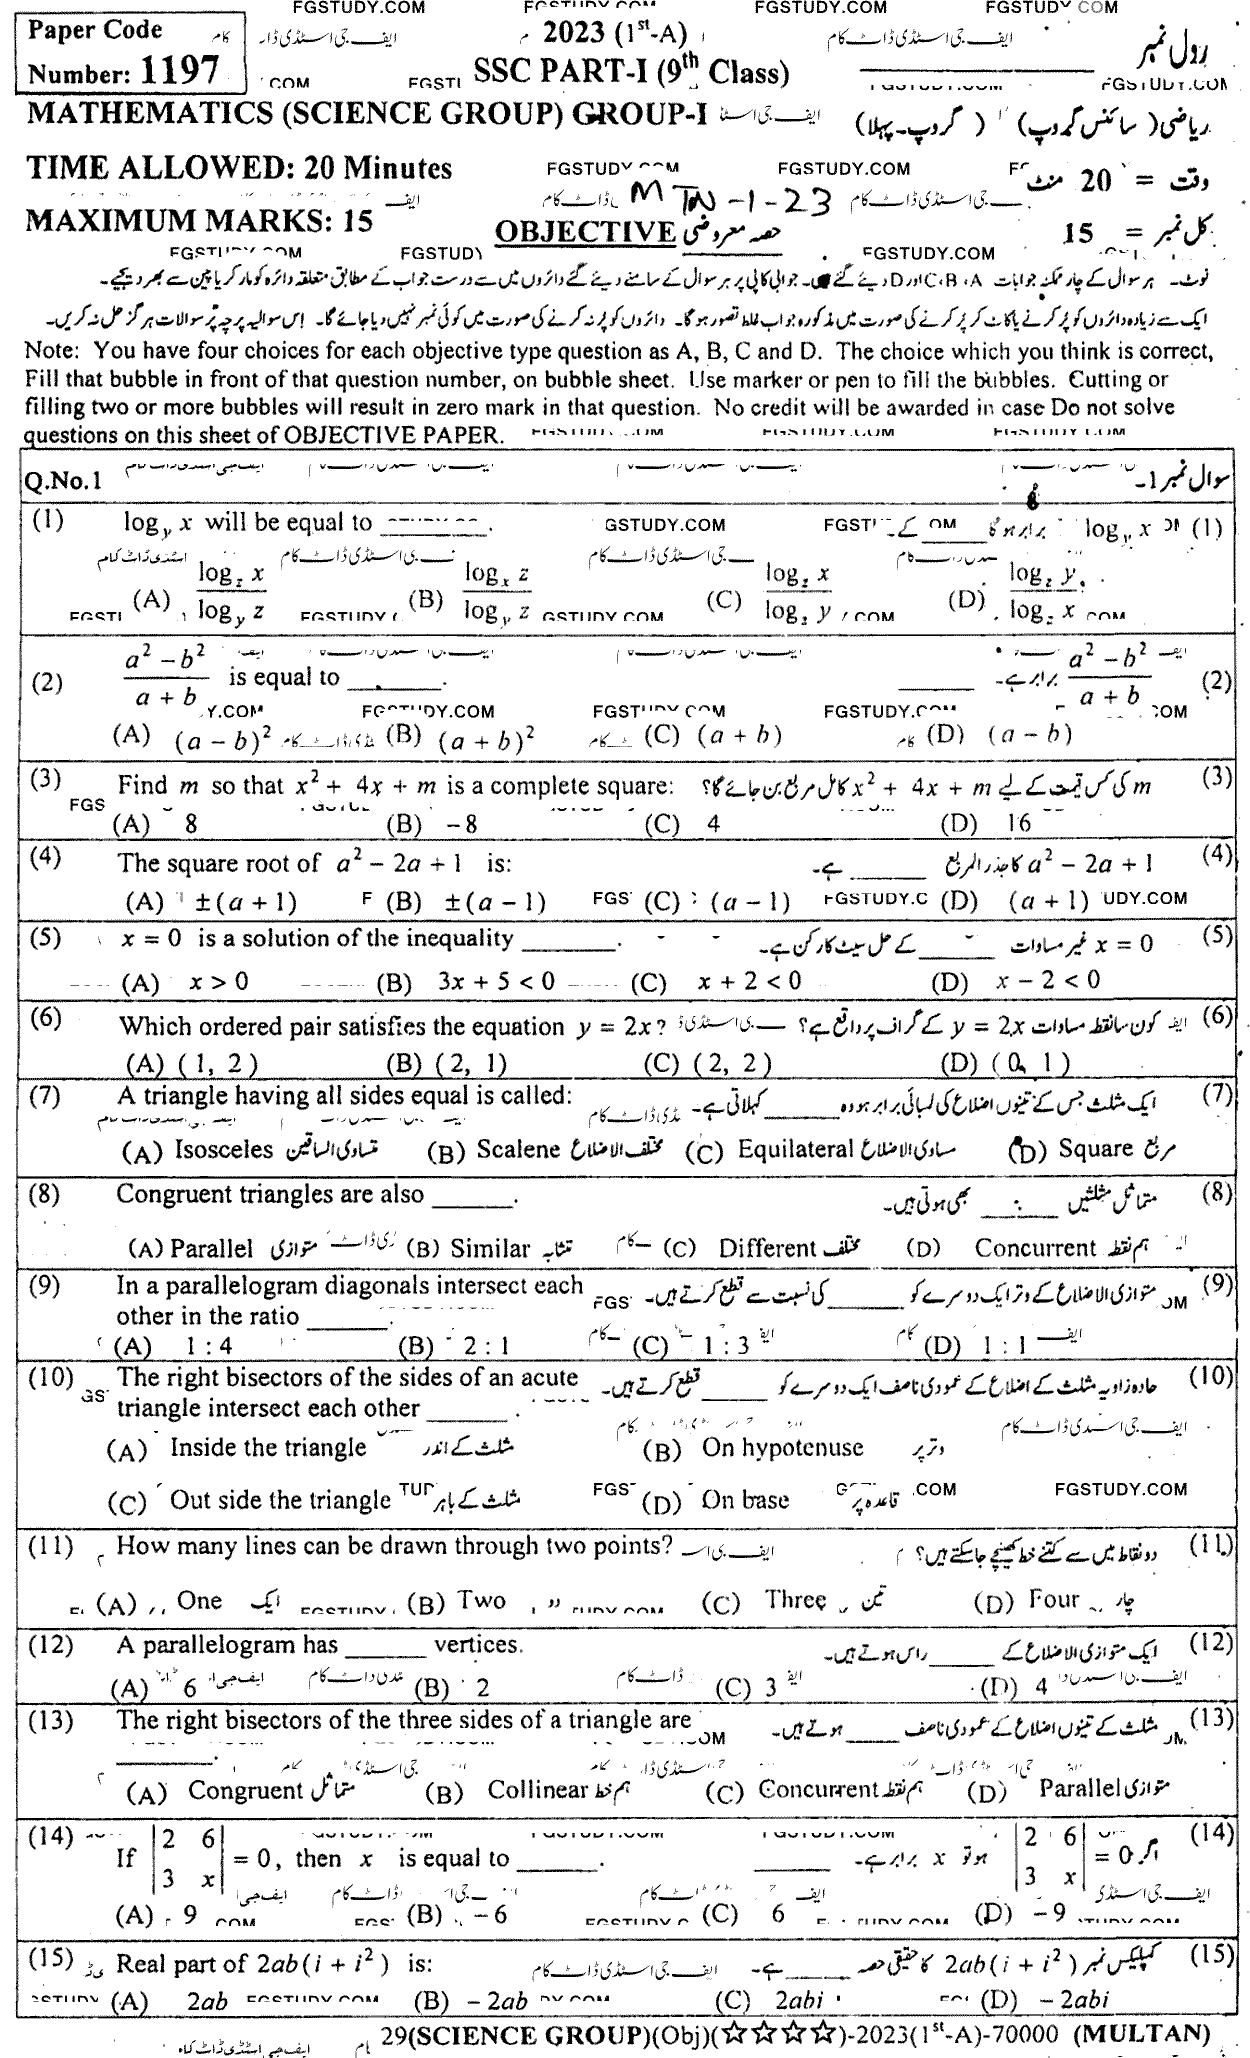 FGSTUDY.COM FGSTUDY.COM FGSTUDY.COM FGSTUDY.COM
Paper Code
Number: 1197
2023 (1st-A)
SSC PART-I (9th Class)
رول نمبر
MATHEMATICS (SCIENCE GROUP) GROUP-I
ریاضی (سائنس گروپ) (گروپ۔پہلا)
TIME ALLOWED: 20 Minutes
وقت = 20 منٹ
MTN-1-23
MAXIMUM MARKS: 15
OBJECTIVE حصہ معروضی
کل نمبر = 15
نوٹ۔ ہر سوال کے چار ممکنہ جوابات A، B، C اور D دیئے گئے ہیں۔ جوابی کاپی پر ہر سوال کے سامنے دیئے گئے دائروں میں سے درست جواب کے مطابق متعلقہ دائرہ کو مارکر یا پین سے بھر دیجیے۔
ایک سے زیادہ دائروں کو پُر کرنے یا کاٹ کر پُر کرنے کی صورت میں مذکورہ جواب غلط تصور ہوگا۔ دائروں کو پُر نہ کرنے کی صورت میں کوئی نمبر نہیں دیا جائے گا۔ اس سوالیہ پرچہ پر سوالات ہرگز حل نہ کریں۔
Note: You have four choices for each objective type question as A, B, C and D. The choice which you think is correct,
Fill that bubble in front of that question number, on bubble sheet. Use marker or pen to fill the bubbles. Cutting or
filling two or more bubbles will result in zero mark in that question. No credit will be awarded in case Do not solve
questions on this sheet of OBJECTIVE PAPER.
Q.No.1 سوال نمبر 1۔
(1) log_y x will be equal to ______. log_y x برابر ہوگا ______ کے۔ (1)
(A) log_z x / log_y z (B) log_x z / log_y z (C) log_z x / log_z y (D) log_z y / log_z x
(2) (a² − b²) / (a + b) is equal to ______. (a² − b²) / (a + b) برابر ہے۔ ______ (2)
(A) (a − b)² (B) (a + b)² (C) (a + b) (D) (a − b)
(3) Find m so that x² + 4x + m is a complete square: m کی کس قیمت کے لیے x² + 4x + m کامل مربع بن جائے گا؟ (3)
(A) 8 (B) −8 (C) 4 (D) 16
(4) The square root of a² − 2a + 1 is: a² − 2a + 1 کا جذرالمربع ______ ہے۔ (4)
(A) ±(a + 1) (B) ±(a − 1) (C) (a − 1) (D) (a + 1)
(5) x = 0 is a solution of the inequality ______. x = 0 غیر مساوات ______ کے حل سیٹ کا رکن ہے۔ (5)
(A) x > 0 (B) 3x + 5 < 0 (C) x + 2 < 0 (D) x − 2 < 0
(6) Which ordered pair satisfies the equation y = 2x? کون سا نقطہ مساوات y = 2x کے گراف پر واقع ہے؟ (6)
(A) (1, 2) (B) (2, 1) (C) (2, 2) (D) (0, 1)
(7) A triangle having all sides equal is called: ایک مثلث جس کے تینوں اضلاع کی لمبائی برابر ہو وہ ______ کہلاتی ہے۔ (7)
(A) Isosceles متساوی الساقین (B) Scalene مختلف الاضلاع (C) Equilateral مساوی الاضلاع (D) Square مربع
(8) Congruent triangles are also ______. متماثل مثلثیں ______ بھی ہوتی ہیں۔ (8)
(A) Parallel متوازی (B) Similar متشابہ (C) Different مختلف (D) Concurrent ہم نقطہ
(9) In a parallelogram diagonals intersect each متوازی الاضلاع کے وتر ایک دوسرے کو ______ کی نسبت سے قطع کرتے ہیں۔ (9)
other in the ratio ______.
(A) 1 : 4 (B) 2 : 1 (C) 1 : 3 (D) 1 : 1
(10) The right bisectors of the sides of an acute حادہ زاویہ مثلث کے اضلاع کے عمودی ناصف ایک دوسرے کو ______ قطع کرتے ہیں۔ (10)
triangle intersect each other ______.
(A) Inside the triangle مثلث کے اندر (B) On hypotenuse وتر پر
(C) Out side the triangle مثلث کے باہر (D) On base قاعدہ پر
(11) How many lines can be drawn through two points? دو نقاط میں سے کتنے خط کھینچے جاسکتے ہیں؟ (11)
(A) One ایک (B) Two دو (C) Three تین (D) Four چار
(12) A parallelogram has ______ vertices. ایک متوازی الاضلاع کے ______ راس ہوتے ہیں۔ (12)
(A) 6 (B) 2 (C) 3 (D) 4
(13) The right bisectors of the three sides of a triangle are مثلث کے تینوں اضلاع کے عمودی ناصف ______ ہوتے ہیں۔ (13)
______.
(A) Congruent متماثل (B) Collinear ہم خط (C) Concurrent ہم نقطہ (D) Parallel متوازی
(14) If |2 6; 3 x| = 0, then x is equal to ______. اگر |2 6; 3 x| = 0 ہو تو x برابر ہے۔ ______ (14)
(A) 9 (B) −6 (C) 6 (D) −9
(15) Real part of 2ab(i + i²) is: کمپلیکس نمبر 2ab(i + i²) کا حقیقی حصہ ______ ہے۔ (15)
(A) 2ab (B) −2ab (C) 2abi (D) −2abi
29(SCIENCE GROUP)(Obj)(☆☆☆☆)-2023(1st-A)-70000 (MULTAN)